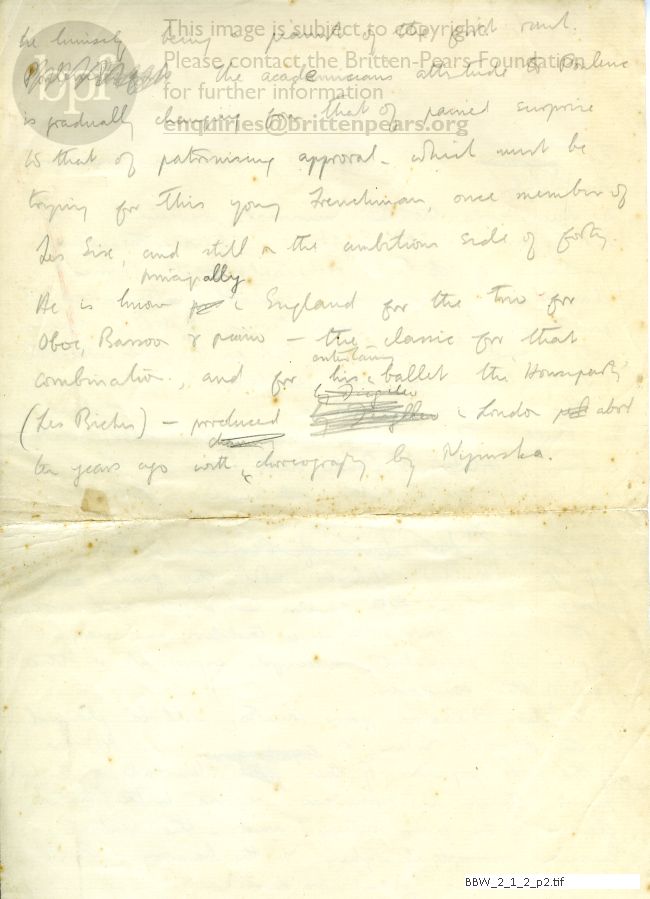 This image is subject to copyright.
Please contact the Britten-Pears Foundation
for further information
enquiries@brittenpears.org
bpf
he himself being a pianist of the first rank.
the academicians attitude to Poulenc
is gradually changing from that of pained surprise
to that of patronising approval - which must be
trying for this young Frenchman, once member of
Les Six, and still on the ambitious side of forty.
principally
He is known in England for the trio for
Oboe, Bassoon & piano - the classic for that
entertaining
combination, and for his ballet the Houseparty
(Les Biches) - produced in London about
ten years ago with choreography by Nijinska.
BBW_2_1_2_p2.tif